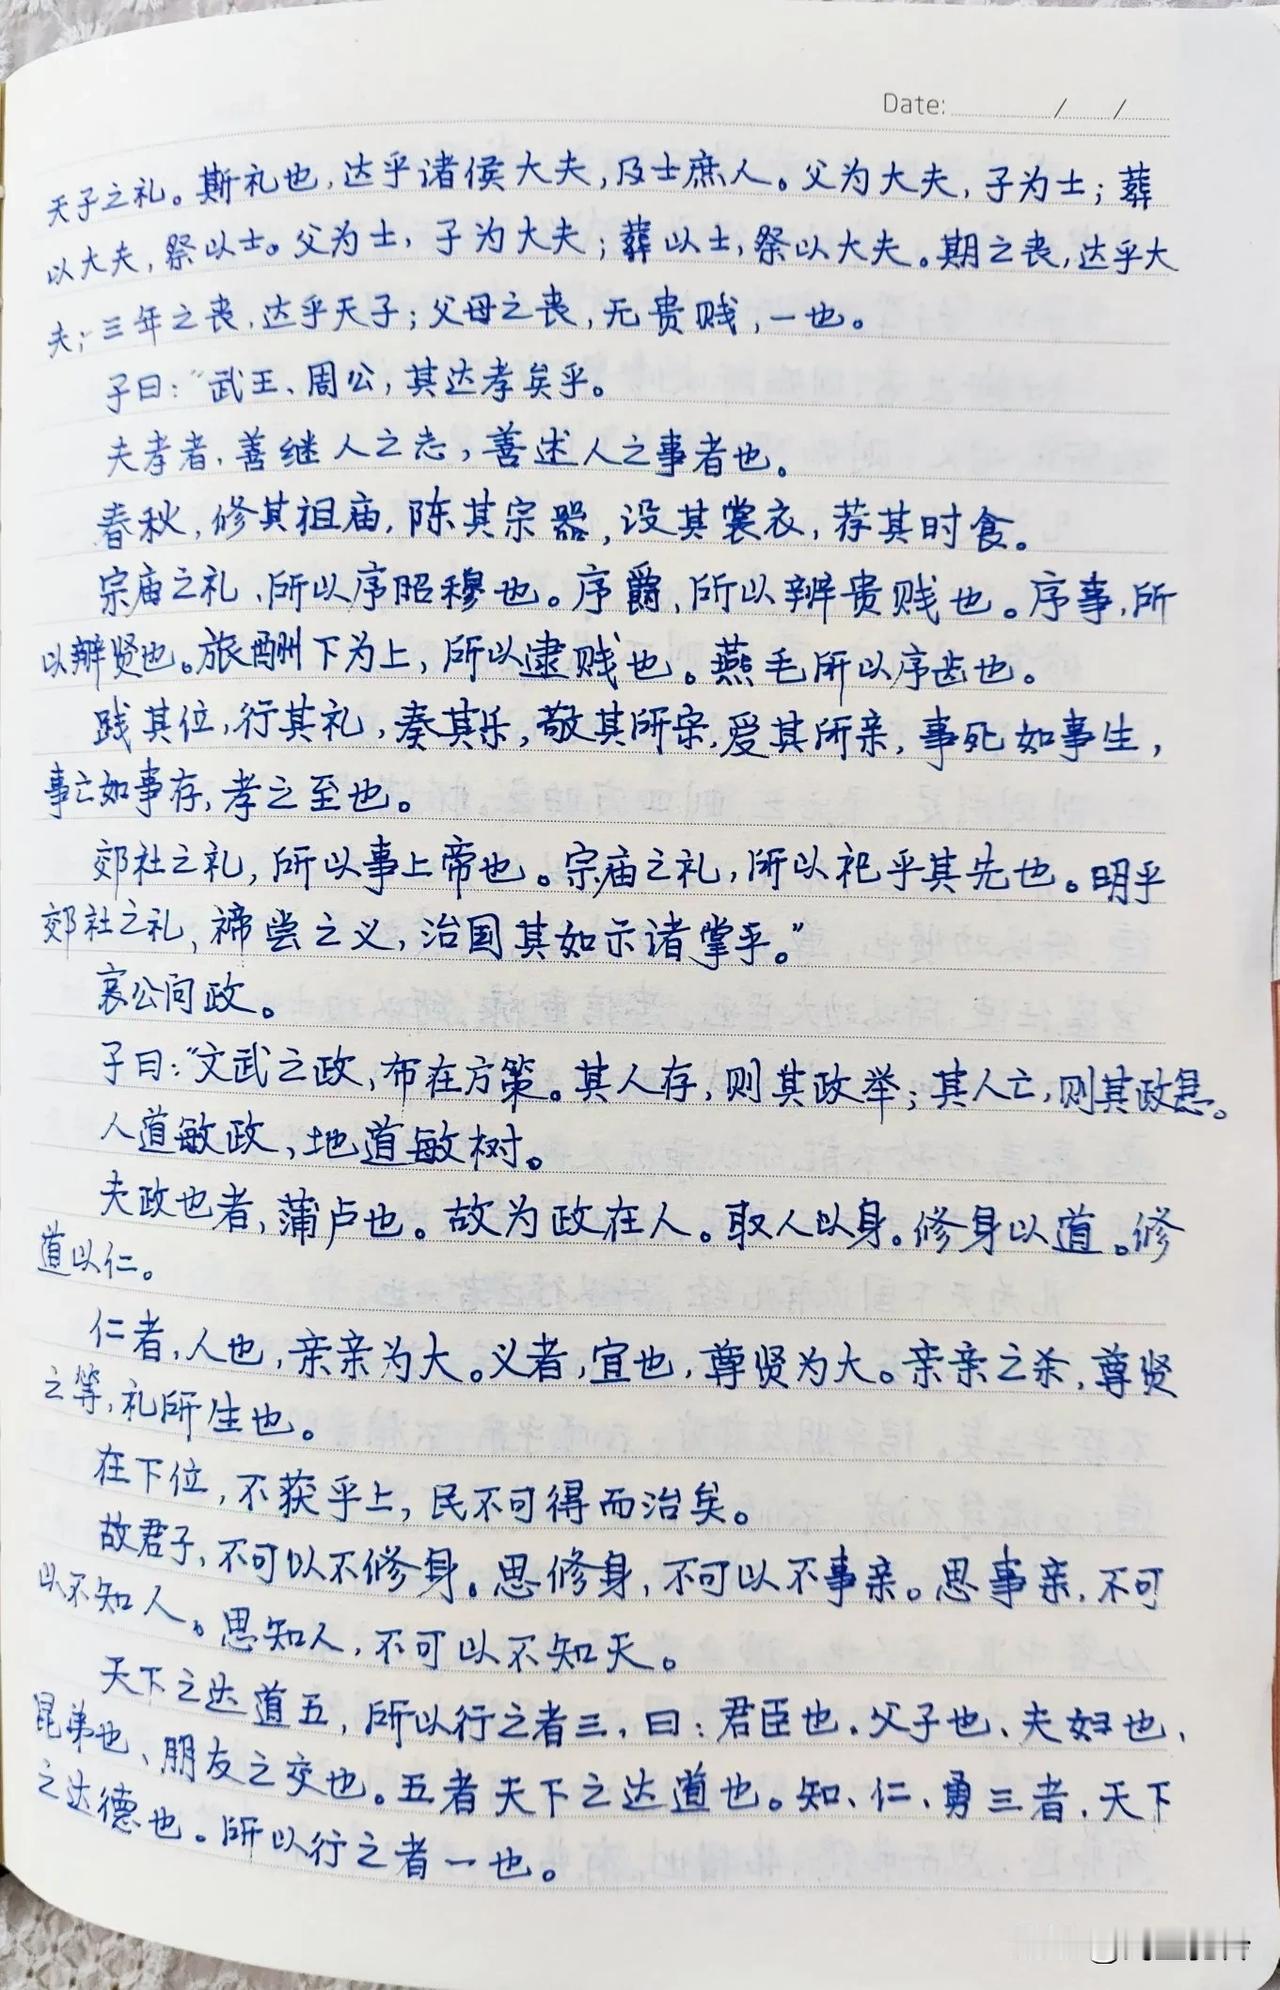 Date: / /
天子之礼。斯礼也,达乎诸侯大夫,及士庶人。父为大夫,子为士;葬
以大夫,祭以士。父为士,子为大夫;葬以士,祭以大夫。期之丧,达乎大
夫;三年之丧,达乎天子;父母之丧,无贵贱,一也。
子曰:“武王、周公,其达孝矣乎。
夫孝者,善继人之志,善述人之事者也。
春秋,修其祖庙,陈其宗器,设其裳衣,荐其时食。
宗庙之礼,所以序昭穆也。序爵,所以辨贵贱也。序事,所
以辨贤也。旅酬下为上,所以逮贱也。燕毛所以序齿也。
践其位,行其礼,奏其乐,敬其所宗,爱其所亲,事死如事生,
事亡如事存,孝之至也。
郊社之礼,所以事上帝也。宗庙之礼,所以祀乎其先也。明乎
郊社之礼,禘尝之义,治国其如示诸掌乎。”
哀公问政。
子曰:“文武之政,布在方策。其人存,则其政举;其人亡,则其政息。
人道敏政,地道敏树。
夫政也者,蒲卢也。故为政在人。取人以身。修身以道。修
道以仁。
仁者,人也,亲亲为大。义者,宜也,尊贤为大。亲亲之杀,尊贤
之等,礼所生也。
在下位,不获乎上,民不可得而治矣。
故君子,不可以不修身。思修身,不可以不事亲。思事亲,不可
以不知人。思知人,不可以不知天。
天下之达道五,所以行之者三,曰:君臣也、父子也、夫妇也、
昆弟也、朋友之交也。五者天下之达道也。知、仁、勇三者,天下
之达德也。所以行之者一也。